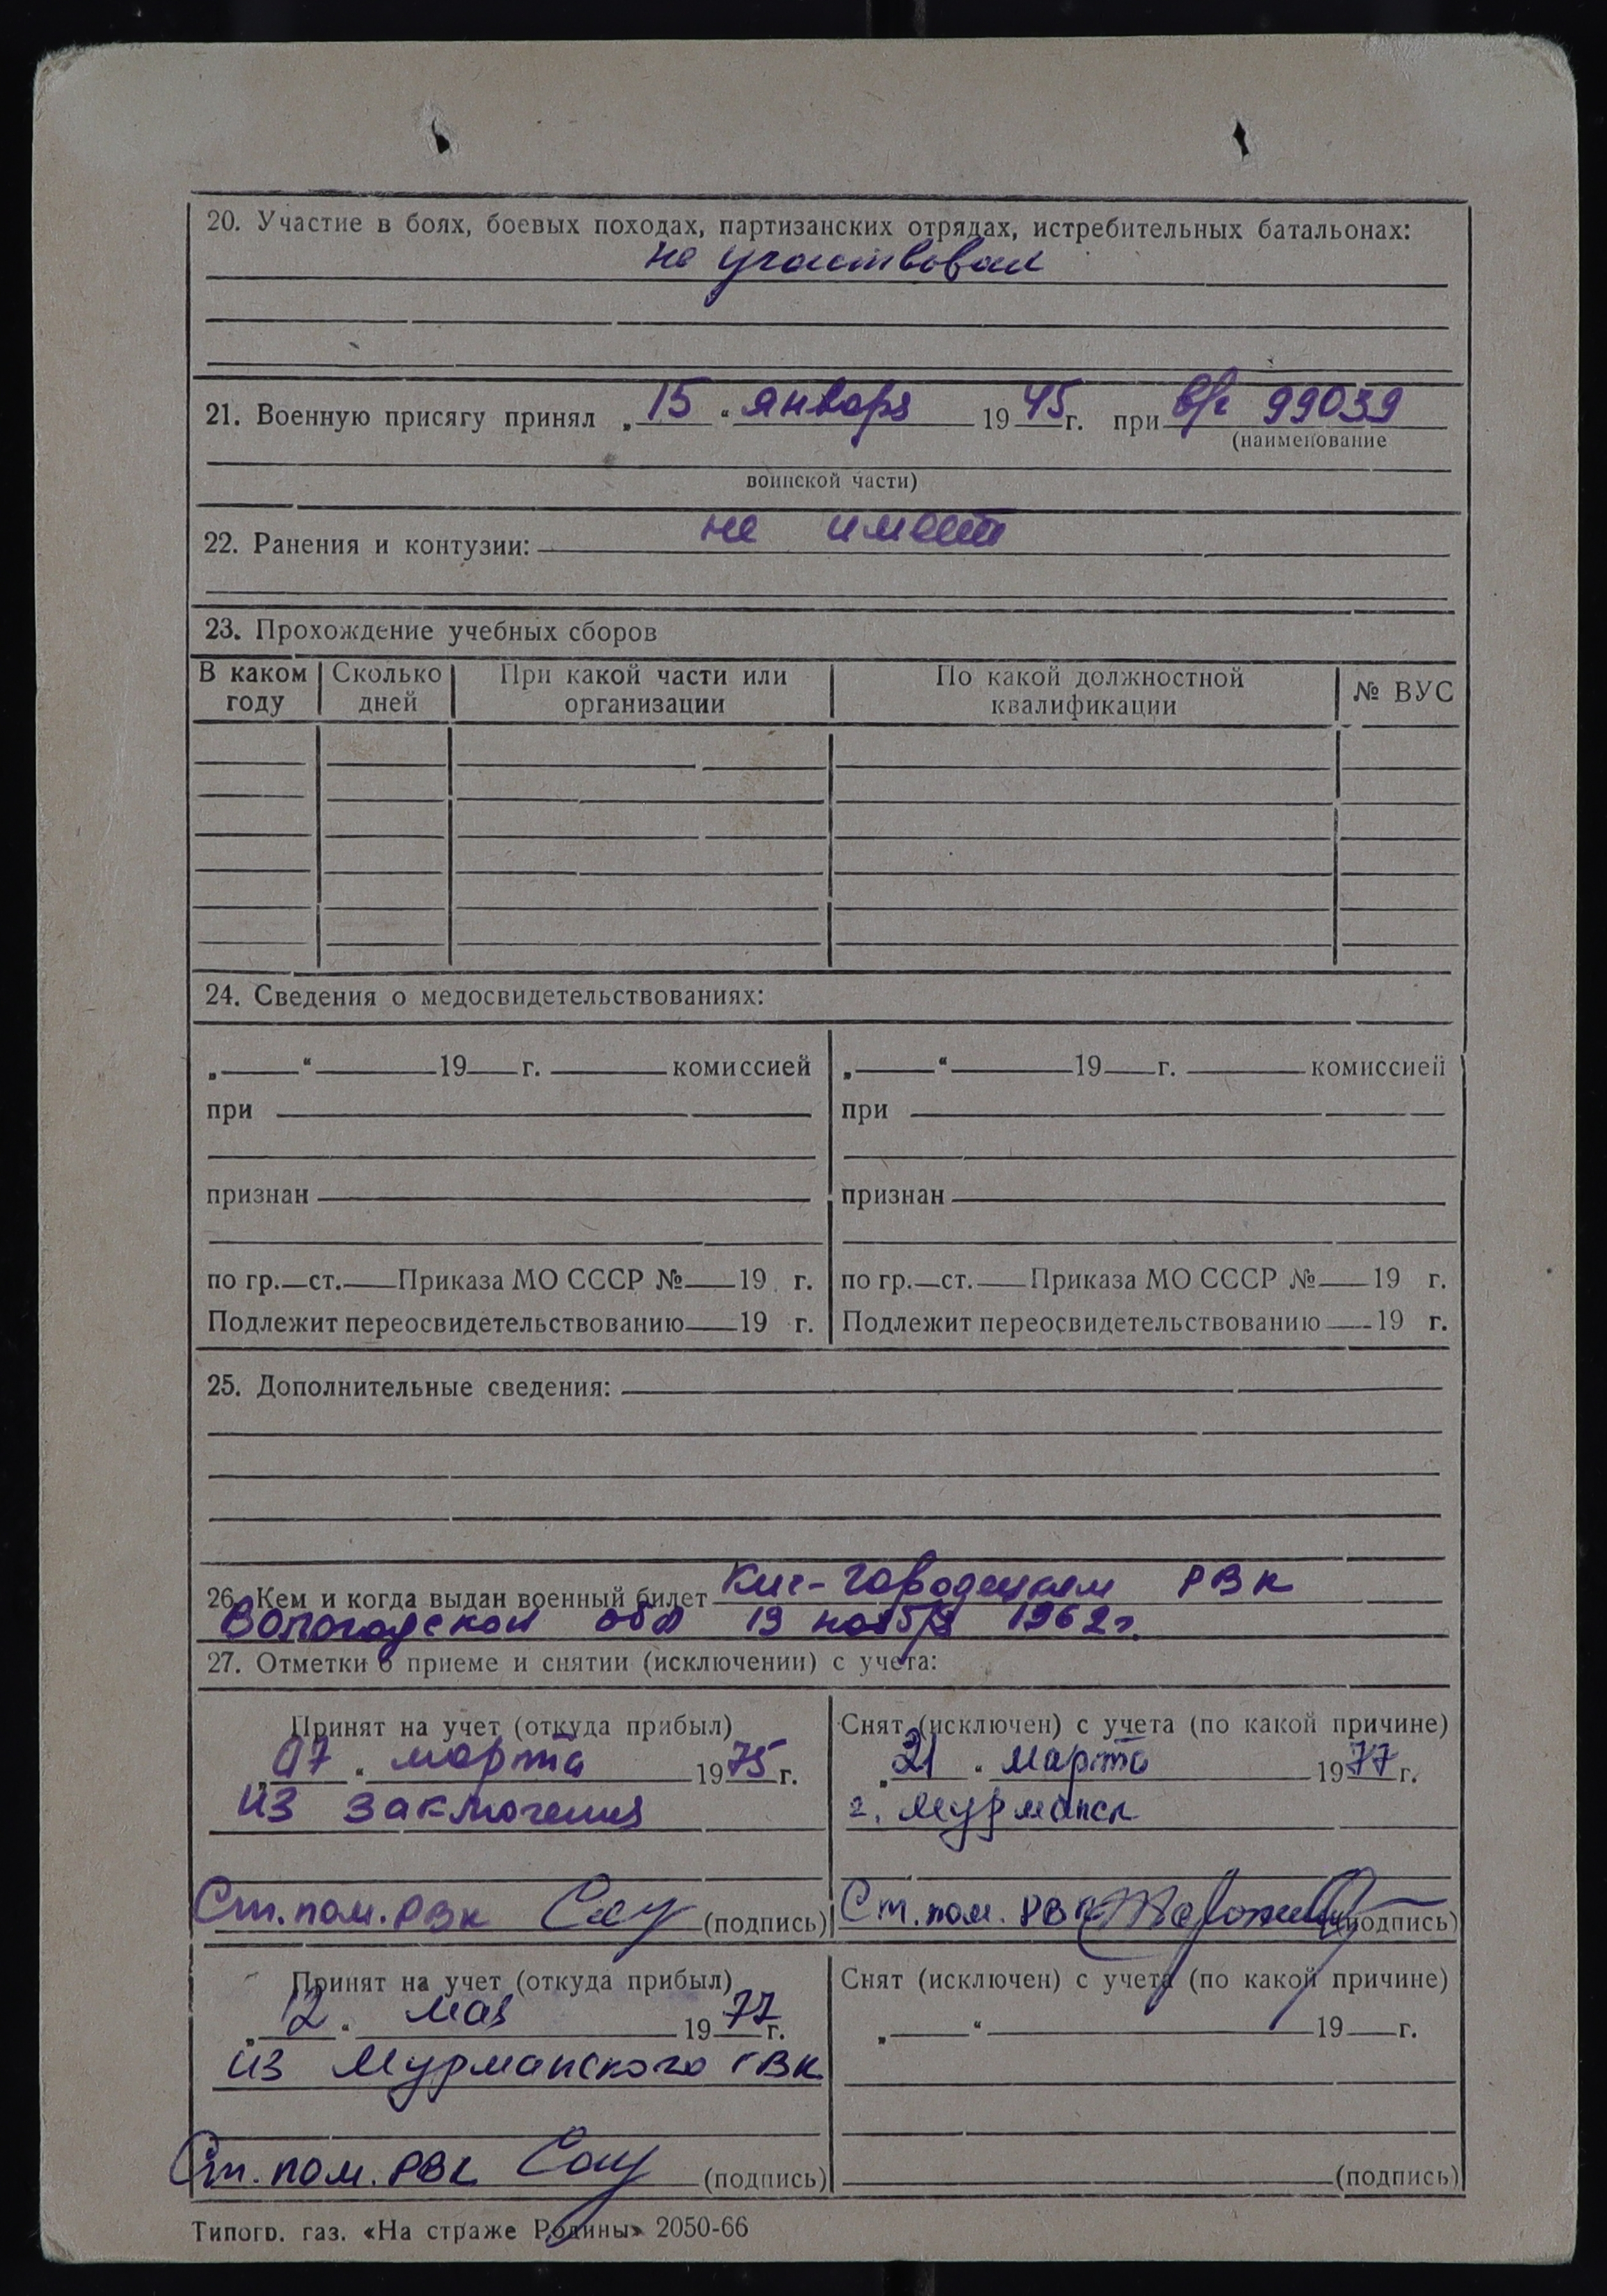 20. Участие в боях, боевых походах, партизанских отрядах, истребительных батальонах:
не участвовал
21. Военную присягу принял „15“ января 1945 г. при в/ч 99039
(наименование
воинской части)
22. Ранения и контузии: не имеет
23. Прохождение учебных сборов
В каком году | Сколько дней | При какой части или организации | По какой должностной квалификации | № ВУС
24. Сведения о медосвидетельствованиях:
„ “ 19 г. комиссией
при
признан
по гр. ст. Приказа МО СССР № 19 г.
Подлежит переосвидетельствованию 19 г.
„ “ 19 г. комиссией
при
признан
по гр. ст. Приказа МО СССР № 19 г.
Подлежит переосвидетельствованию 19 г.
25. Дополнительные сведения:
26. Кем и когда выдан военный билет Кич-Городецким РВК
Вологодской обл 19 ноября 1962 г.
27. Отметки о приеме и снятии (исключении) с учета:
Принят на учет (откуда прибыл)
„07“ марта 1975 г.
из заключения
Ст. пом. РВК (подпись)
Снят (исключен) с учета (по какой причине)
„21“ марта 1977 г.
г. Мурманск
Ст. пом. РВК (подпись)
Принят на учет (откуда прибыл)
„12“ мая 1977 г.
из Мурманского ГВК
Ст. пом. РВК (подпись)
Снят (исключен) с учета (по какой причине)
„ “ 19 г.
(подпись)
Типогр. газ. «На страже Родины» 2050-66